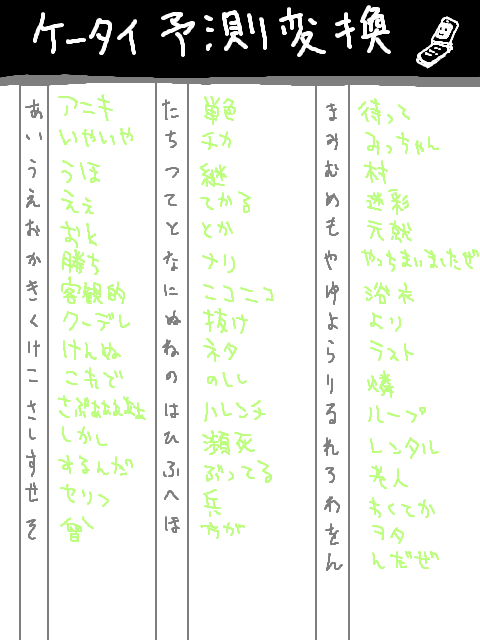 ケータイ予測変換
あ アニキ
い いやいや
う うほ
え ええ
お おと
か 勝ち
き 客観的
く クーデレ
け けんぬ
こ これで
さ
し しかし
す するんだの
せ セリフ
そ 曾
た 単色
ち チカ
つ 継
て てかる
と とか
な ナリ
に ニコニコ
ぬ 抜け
ね ネタ
の のしし
は ハレンチ
ひ 瀕死
ふ ぶってる
へ 兵
ほ 方が
ま 待って
み みっちゃん
む 村
め 迷彩
も 元親
や やっちまいましたぜ
ゆ 浴衣
よ より
ら ラスト
り 燐
る ループ
れ レンタル
ろ 老人
わ わくてか
を ヲタ
ん んだぜ